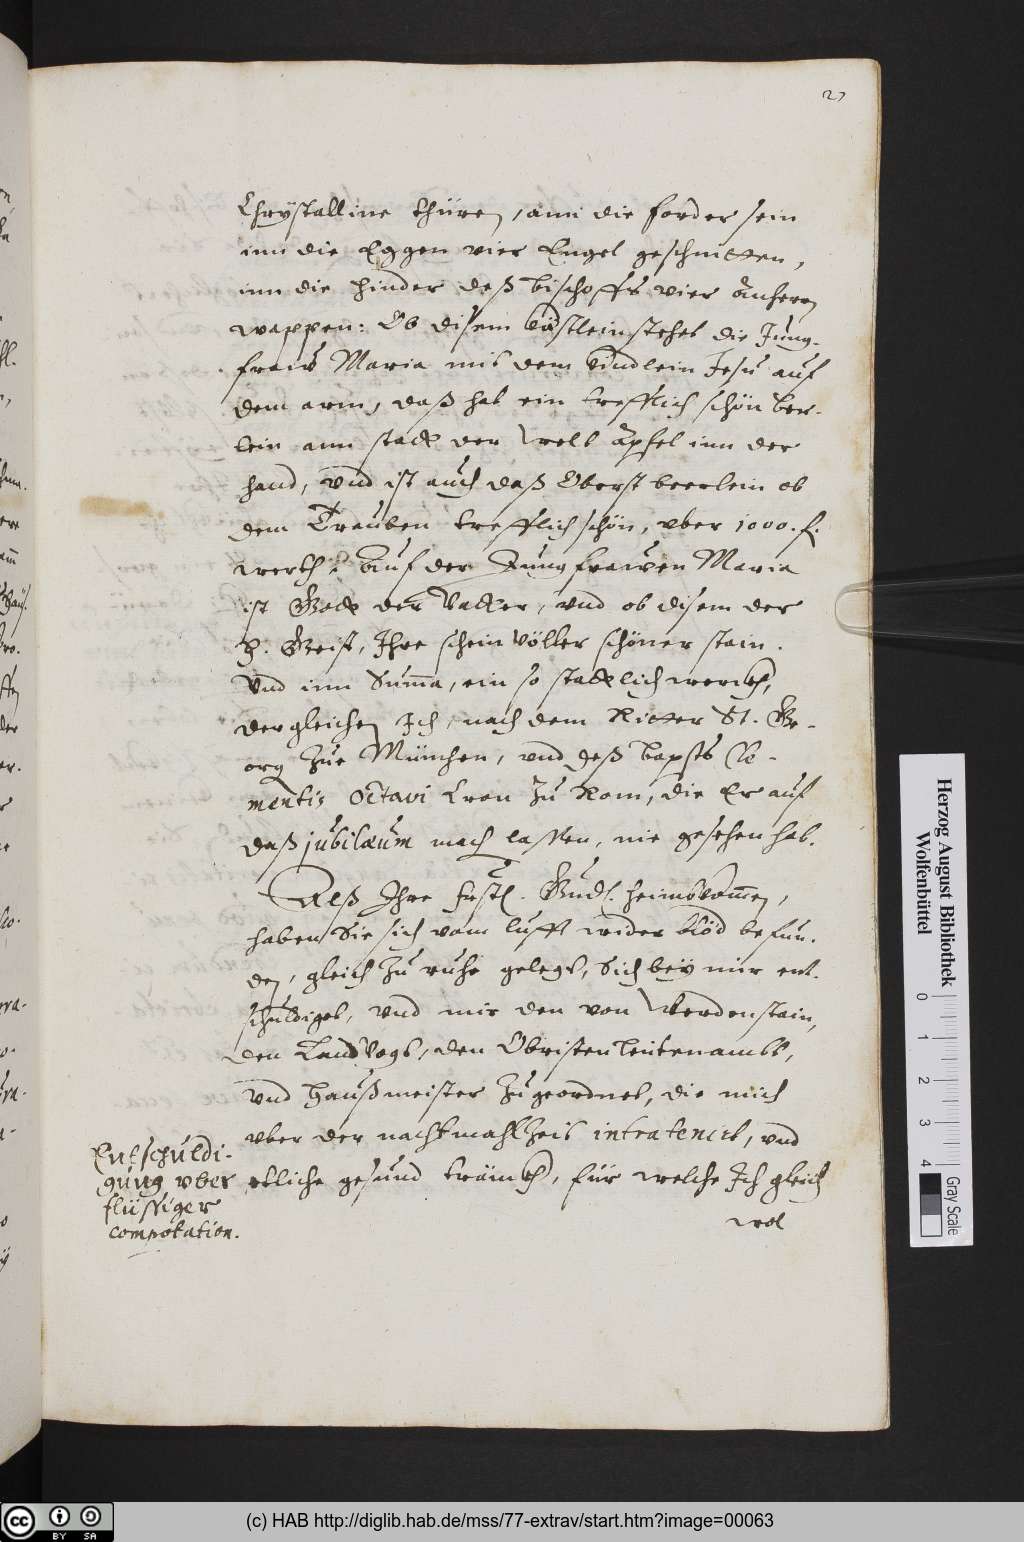 27
Chrystalline thüren, ann die forder sein
inn die Eggen vier Engel geschnitten,
inn die hinder deß bischoffs vier änherrn
wappen: Ob disem kästlein stehet die Jung-
fraw Maria mit dem kindlein Jesu auf
dem arm, daß hat ein trefflich schön ber-
lein ann statt der Welt äpfel inn der
hand, vnd ist auch daß Oberst beerlein ob
dem Trauben trefflich schön, vber 1000. f.
werth: Auf der Jungfrawen Maria
ist Gott der Vatter, vnd ob disem der
H. Geist, Ihre schein völler schöner stain.
Vnd inn Summa, ein so stattlich werckh,
dergleichen Ich, nach dem Ritter St. Ge-
org zue München, vnd deß bapsts Cle-
mentis Octavi Cron zu Rom, die Er auf
daß jubilæum mach lassen, nie gesehen hab.
Alß Ihre fürstl. Gnd. heimbkommen,
haben Sie sich vom lufft wider blöd befun-
den, gleich zu ruhe gelegt, Sich bey mir ent-
schuldiget, vnd mir den von Werdenstain,
den Landvogt, den Obristen leütenambt,
vnd Haußmeister zugeordnet, die mich
vber der nachtmahlzeit intratenirt, vnd
etliche gesund trünckh, für welche Ich gleich
wol
Entschuldi-
gung vber
flüssiger
compotation.
Herzog August Bibliothek
Wolfenbüttel
0 1 2 3 4
Gray Scale
cc BY SA
(c) HAB http://diglib.hab.de/mss/77-extrav/start.htm?image=00063